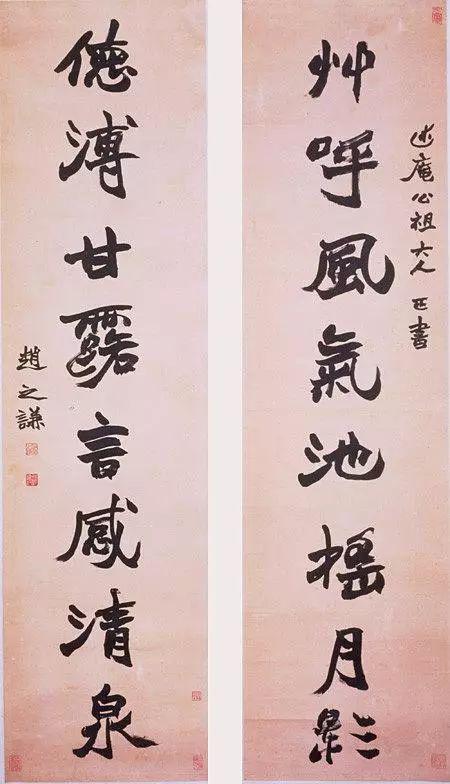 述庵公祖大人 正書
艸呼風氣池搖月影
德溥甘露言感清泉
趙之謙